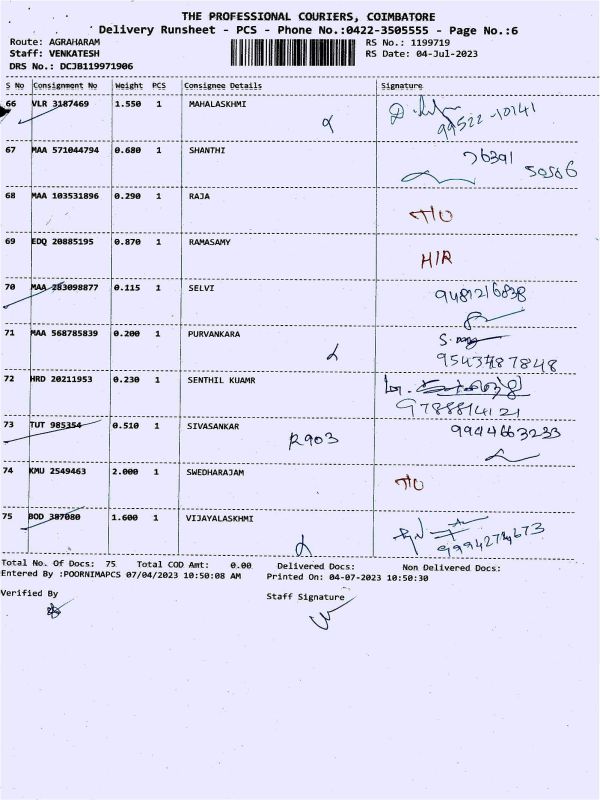 THE PROFESSIONAL COURIERS, COIMBATORE
Delivery Runsheet - PCS - Phone No.:0422-3505555 - Page No.:6
Route: AGRAHARAM RS No.: 1199719
Staff: VENKATESH RS Date: 04-Jul-2023
DRS No.: DCJB119971906
S No Consignment No Weight PCS Consignee Details Signature
66 VLR 3187469 1.550 1 MAHALASKHMI 99522-10141
67 MAA 571044794 0.680 1 SHANTHI 76391 50506
68 MAA 103531896 0.290 1 RAJA T/O
69 EDQ 20885195 0.870 1 RAMASAMY H/R
70 MAA 283098877 0.115 1 SELVI 9487216838
71 MAA 568785839 0.200 1 PURVANKARA
72 HRD 20211953 0.230 1 SENTHIL KUAMR 9788814121
73 TUT 985354 0.510 1 SIVASANKAR R903 9944663233
74 KMU 2549463 2.000 1 SWEDHARAJAM T/O
75 BOD 387080 1.600 1 VIJAYALASKHMI
Total No. Of Docs: 75 Total COD Amt: 0.00 Delivered Docs: Non Delivered Docs:
Entered By :POORNIMAPCS 07/04/2023 10:50:08 AM Printed On: 04-07-2023 10:50:30
Verified By Staff Signature